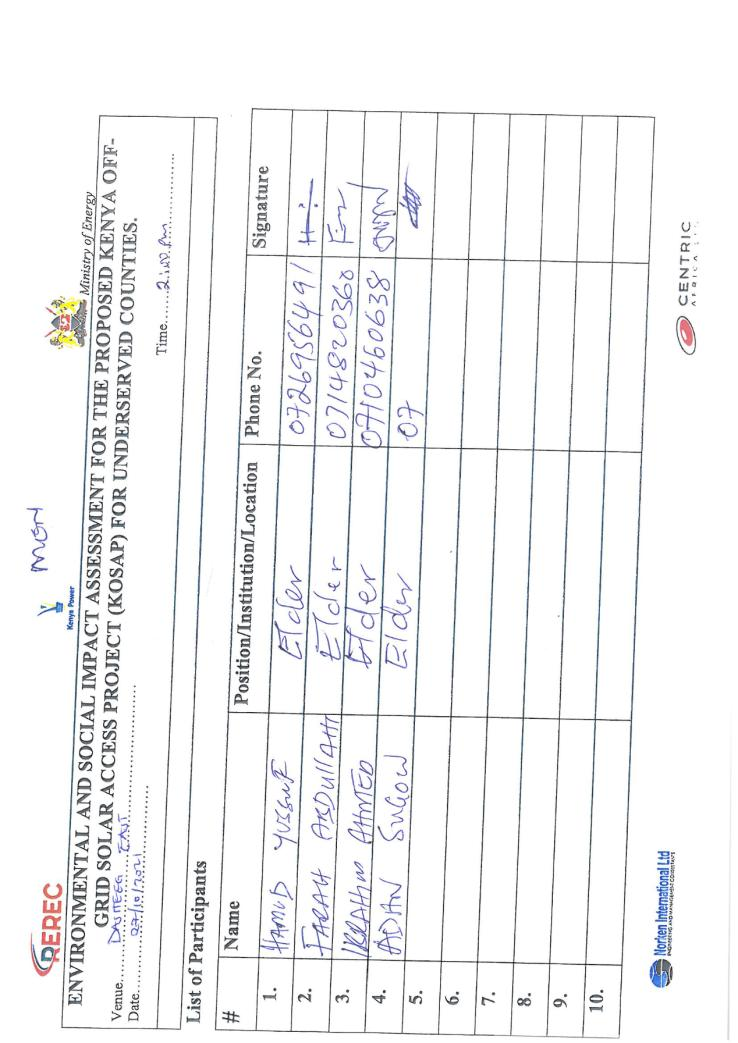 REREC
Kenya Power
MEN
Ministry of Energy
ENVIRONMENTAL AND SOCIAL IMPACT ASSESSMENT FOR THE PROPOSED KENYA OFF-
GRID SOLAR ACCESS PROJECT (KOSAP) FOR UNDERSERVED COUNTIES.
Venue...... EAST
Date...... 27/10/2021
Time...... 2:100.Pm
List of Participants
# Name Position/Institution/Location Phone No. Signature
1. HAMUD YUSSUF Elder 0726956491
2. FARAH ABDULLAHI Elder 0714820360
3. IBRAHIM AHMED Elder 0710460638
4. ADAN SUGOW Elder 07
5.
6.
7.
8.
9.
10.
Norken International Ltd
ENGINEERING AND MANAGEMENT CONSULTANTS
CENTRIC
AFRICA LTD